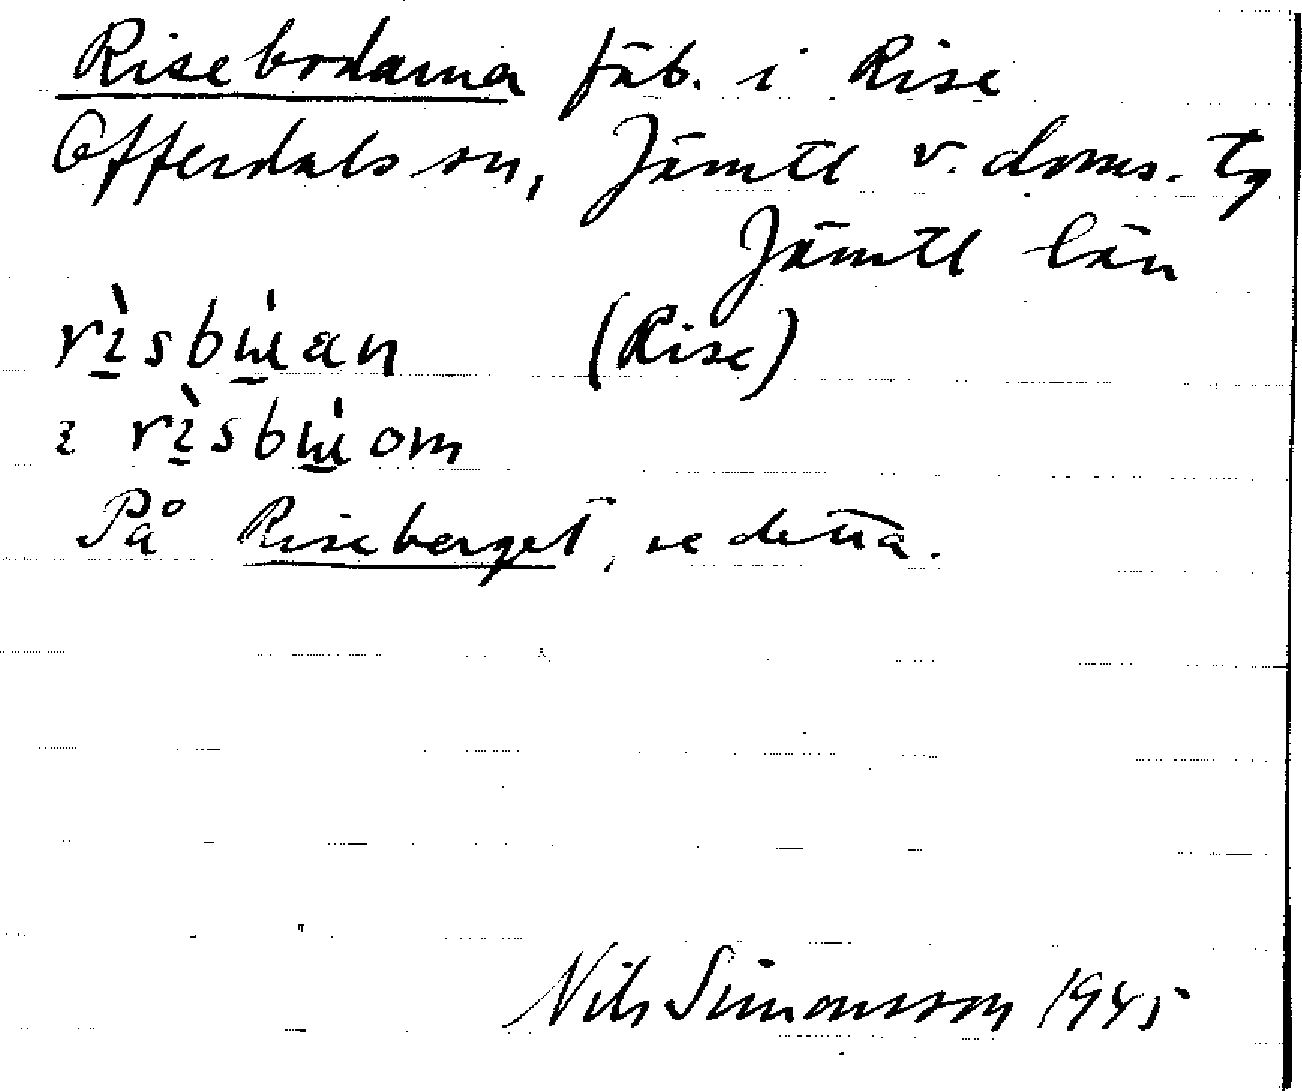 Risebodarna fäb. i Rise
Offerdals sn, Jämtl v. doms. tg
Jämtl län
(Rise)
i
På Riseberget, se detta.
Nils Simonsson 1945